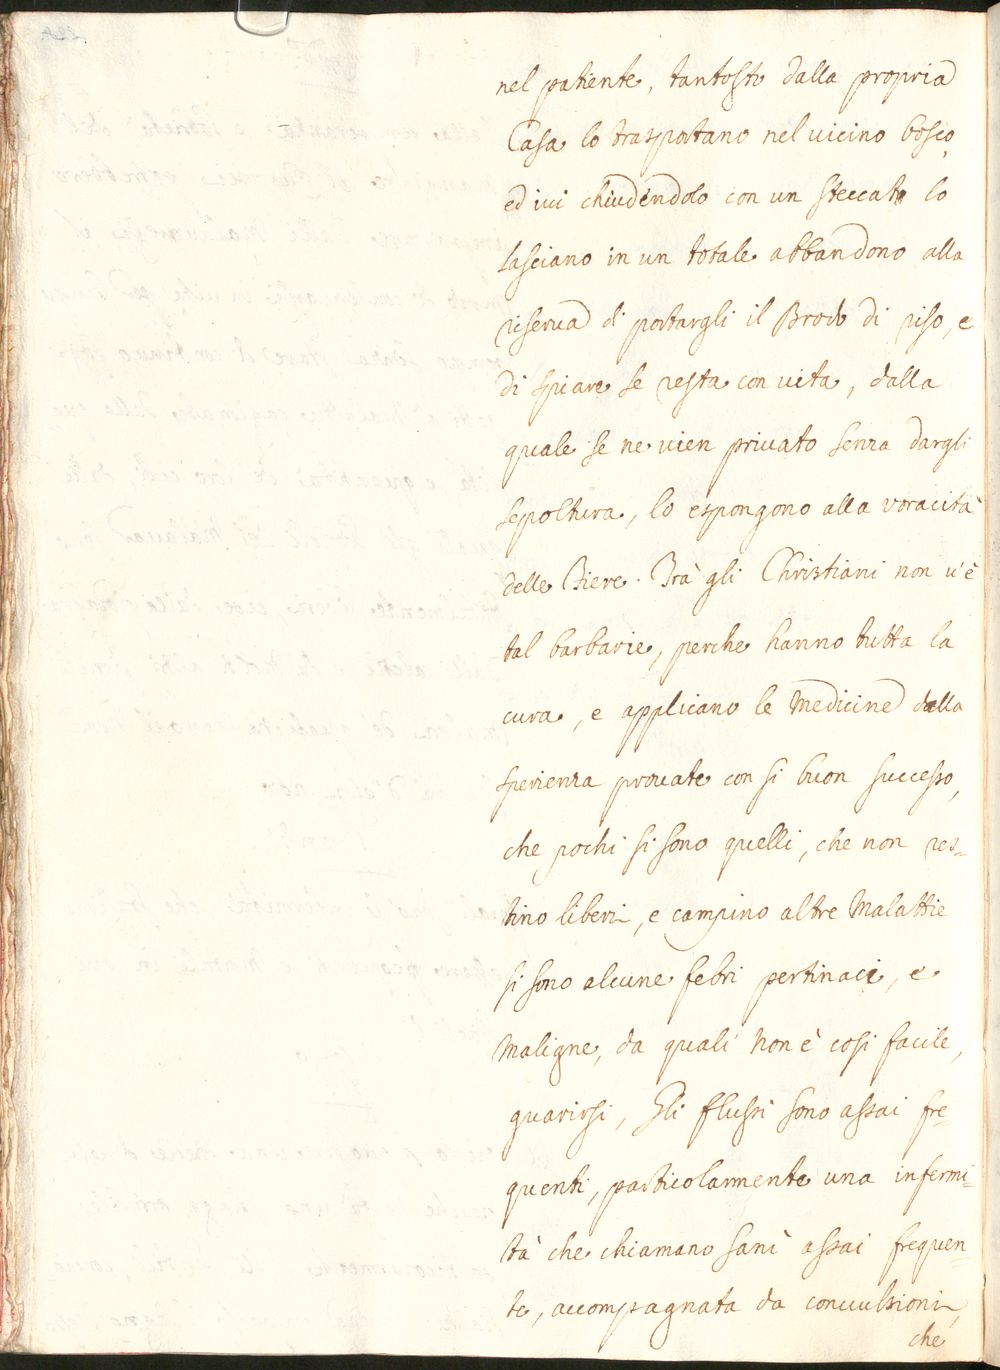 nel patiente, tantosto dalla propria
Casa lo trasportano nel vicino bosco
ed ivi chiudendolo con un steccato lo
lasciano in un totale abbandono alla
riserva di portargli il Brodo di riso, e
di spiare se resta con vita, dalla
quale se ne vien privato senza dargli
sepoltura, lo espongono alla voracità
delle Fiere. Frà gli Christiani non v'è
tal barbarie, perche hanno tutta la
cura, e applicano le Medicine dalla
sperienza provate con si buon successo,
che pochi si sono quelli, che non res-
tino liberi, e campino altre Malattie
si sono alcune febri pertinaci, e
Maligne, da quali non è cosi facile,
guarirsi, Gli flussi sono assai fre-
quenti, particolarmente una infermi-
tà che chiamano sanì assai frequen-
te, accompagnata da convulsioni,
che